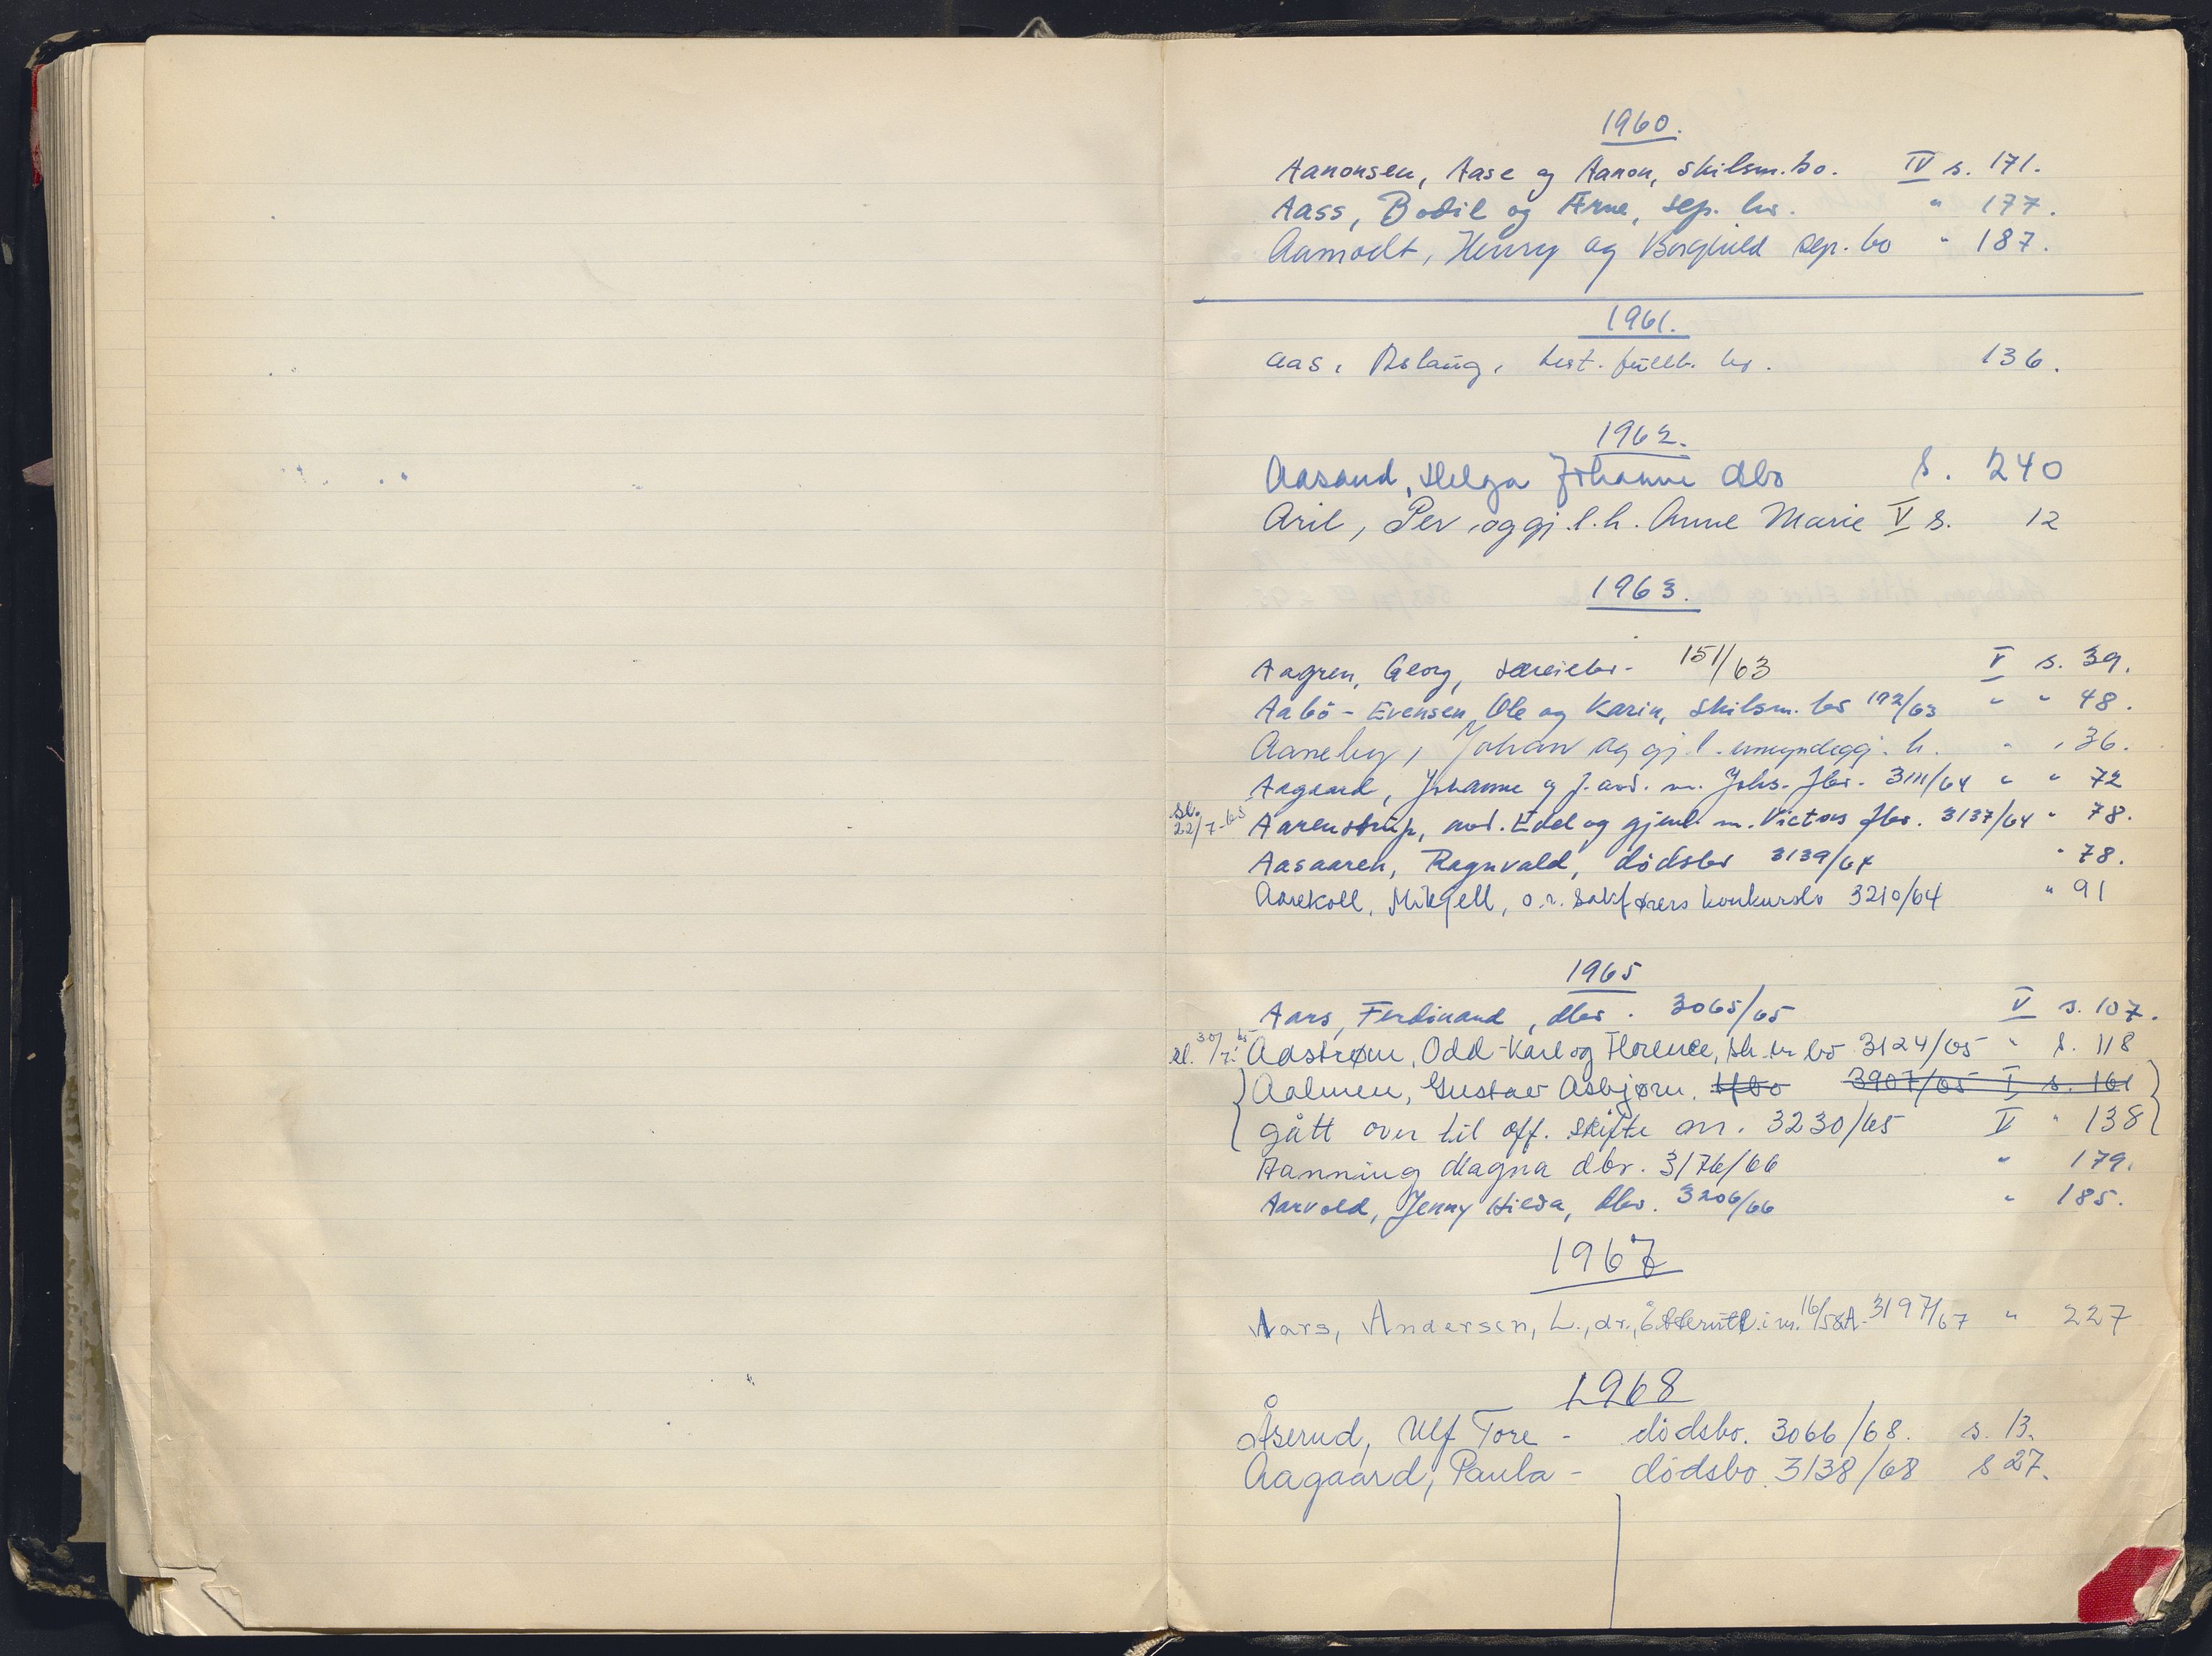 1960.
Aanonsen, Aase og Aanon, skilsm. bo. IV s. 171.
Aass, Bodil og Arne, sep. bo. " 177.
Aamodt, Henry og Borghild sep. bo " 187.
1961.
Aas, Aslaug, test. fullb. bo. 136.
1962.
Aasand, Helga Johanne dbo s. 240
Aril, Per og gj.l.h. Anne Marie V s. 12
1963.
Aagren, Georg, særeiebo - 151/63 V s. 39.
Aabö - Evensen, Ole og Karin, skilsm. bo 192/63 " " 48.
Aaneby, Johan og gj. l. umyndiggj. h. " " 36.
Aagaard, Johanne og f. avd. m. Johs. fbo. 3111/64 " " 72
sl. 22/7-65 Aarenstrup, avd. Edel og gjenl. m. Victors fbo. 3137/64 " 78.
Aasaaren, Ragnvald, dödsbo 3139/64 " 78.
Aarekoll, Mikjell, o.r. sakførers konkursbo 3210/64 " 91
1965
Aars, Ferdinand, dbo. 3065/65 V s. 107.
sl. 30/7-65 Aastrøm, Odd-Karl og Florence, sk.m bo 3124/65 " s. 118
Aalmen, Gustav Asbjørn. 3907/65 I s. 161
gått over til off. skifte nr. 3230/65 V " 138
Aanning Magna dbo. 3176/66 " 179.
Aarvold, Jenny Hilda, dbo. 3206/66 " 185.
1967
Aars, Andersen, L., dr., Etterutl. i nr. 16/58A. 3197/67 " 227
1968
Åserud, Ulf Tore - dödsbo. 3066/68. s. 13.
Aagaard, Paula - dödsbo 3138/68 s 27.